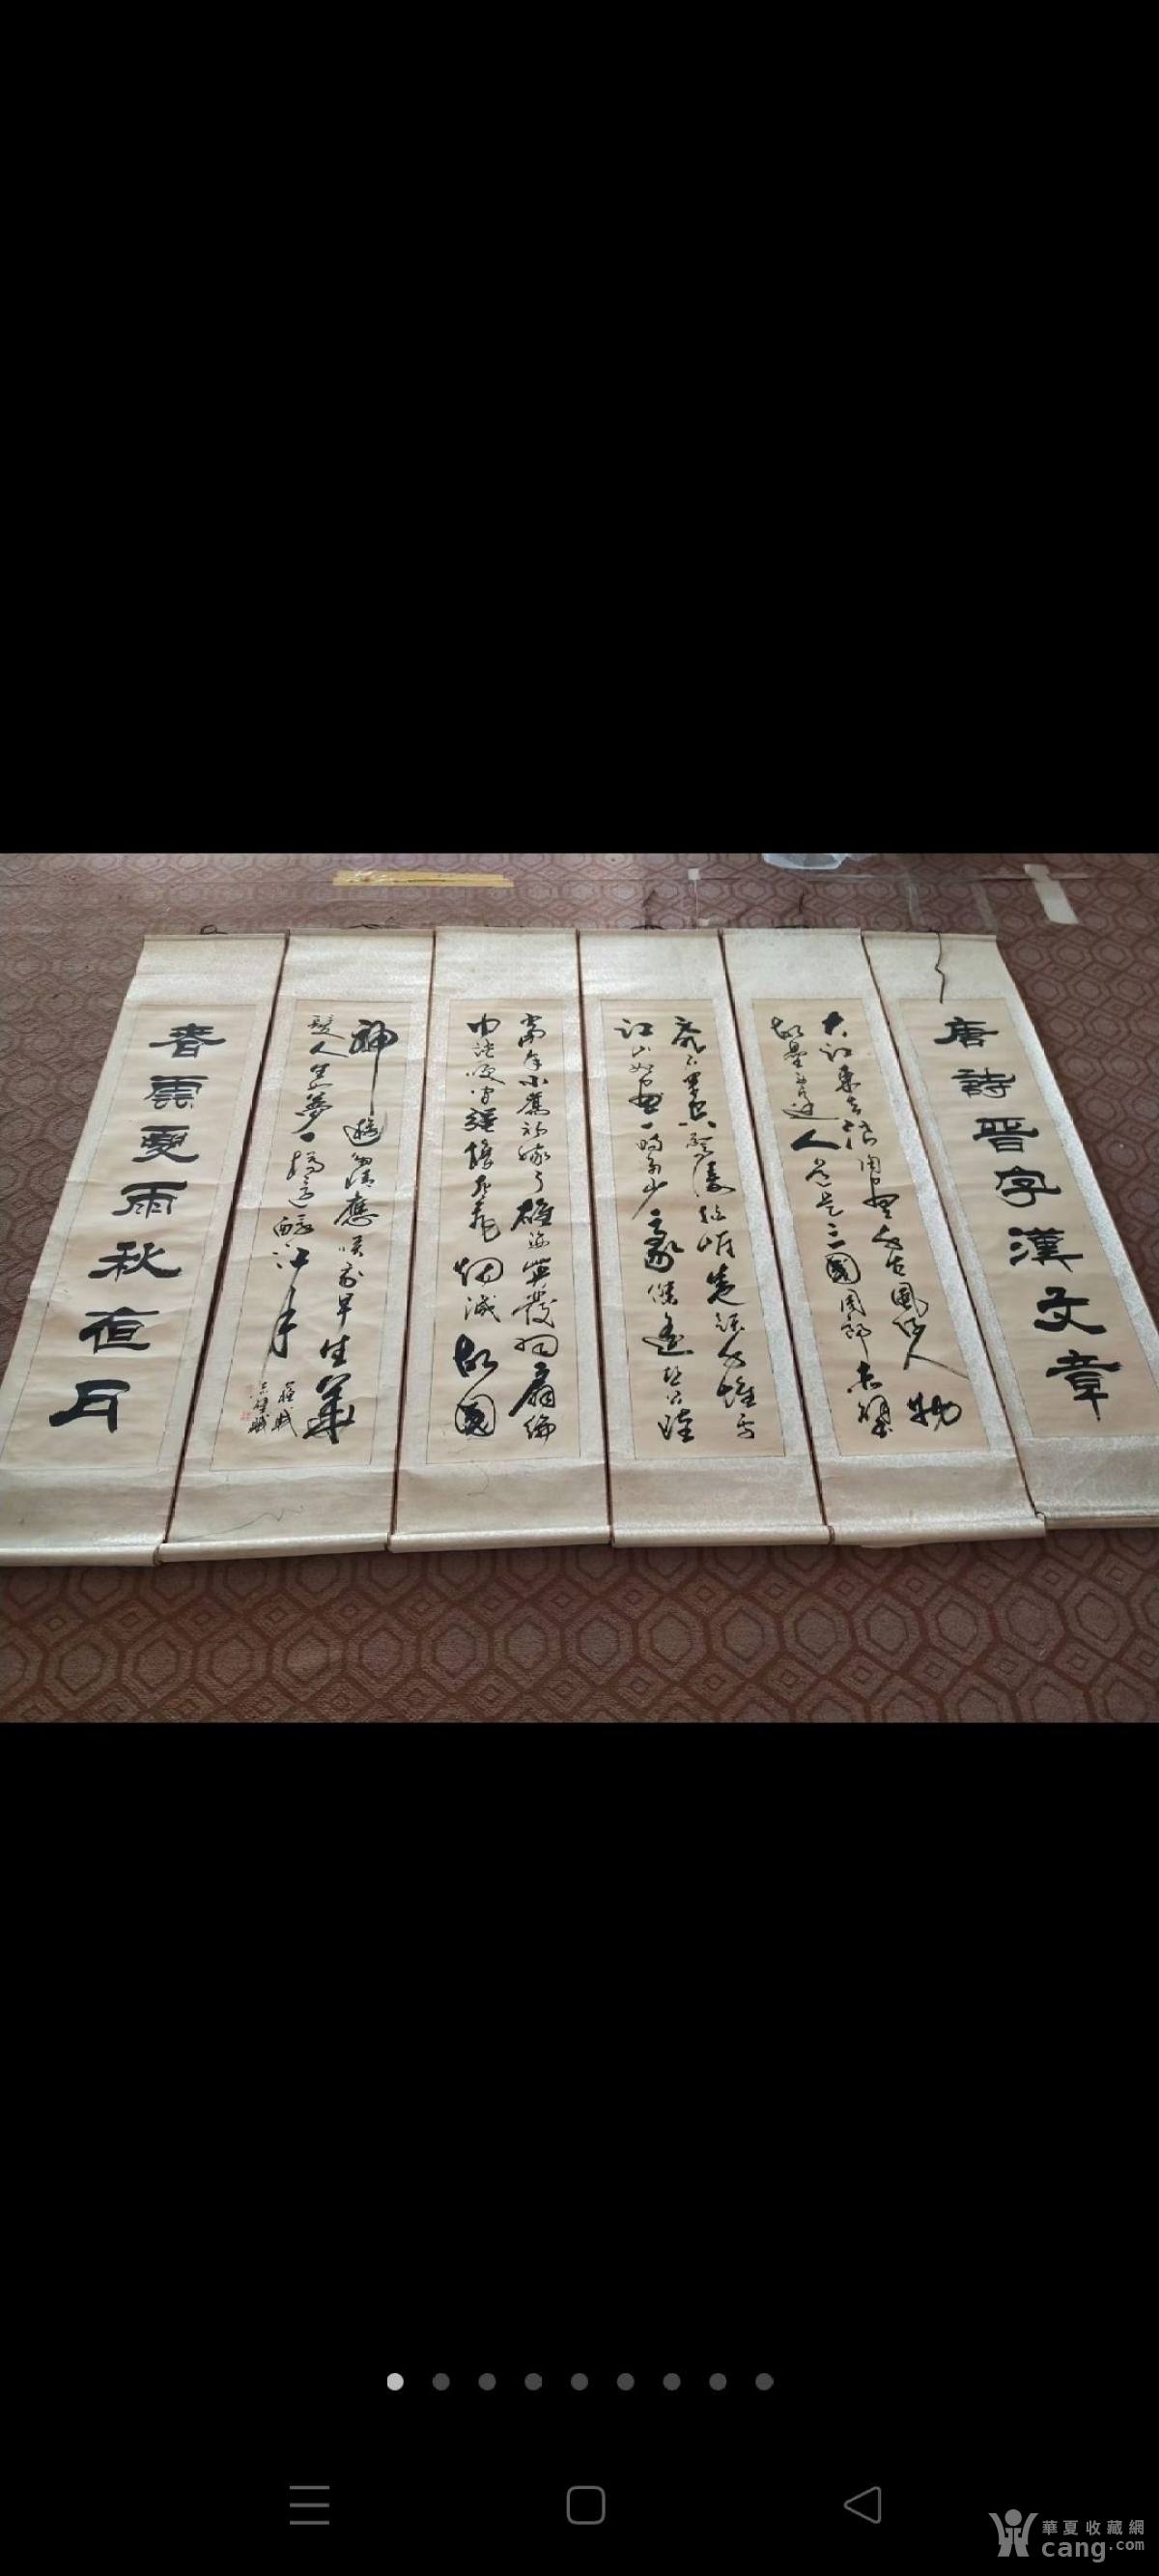 唐詩晋字漢文章
大江東去浪淘盡千古風流人物
故壘西邊人道是三國周郎赤壁
江山如畫一時多少豪傑遥想公瑾
當年小喬初嫁了雄姿英發羽扇綸
巾談笑間灰飛烟滅故國
神遊多情應笑我早生華
髮人生夢一樽還酹江月
蘇軾
赤壁賦
春雲夏雨秋夜月
華夏收藏網
cang.com